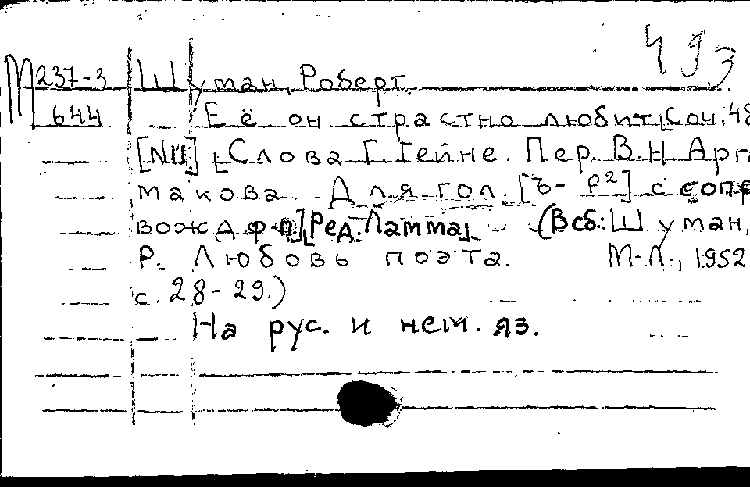 493
М 237-3 Шуман, Роберт
644 Её он страстно любит, соч. 48
[N11] [Слова Г. Гейне. Пер. В.Н Арг
макова. Для гол. [ъ- f²] с сопр
вожд ф-п] [Ред. Ламма] (В сб: Шуман,
Р. Любовь поэта. М-Л., 1952
с. 28-29.)
На рус. и нем. яз.